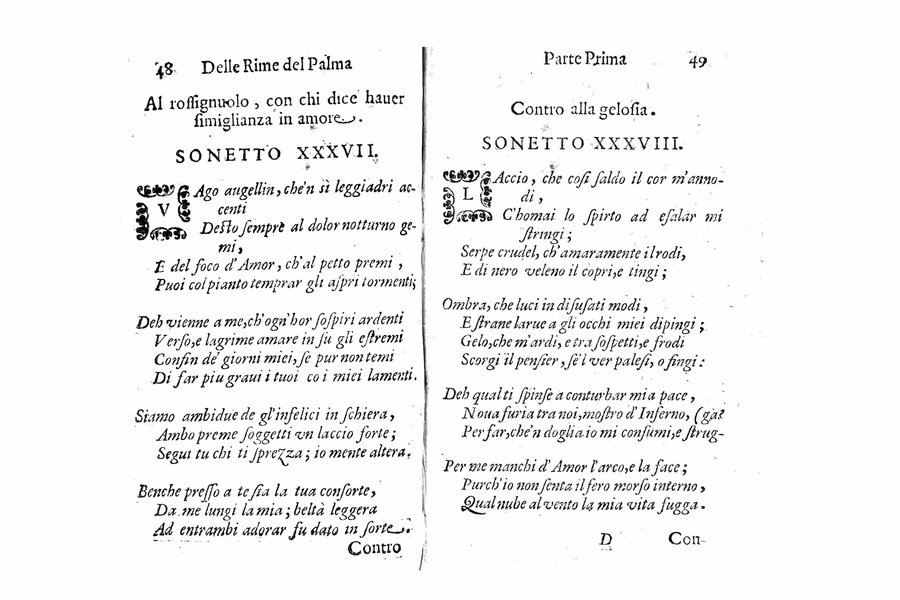 48 Delle Rime del Palma
Al rossignuolo, con chi dice hauer
simiglianza in amore.
SONETTO XXXVII.
VAgo augellin, che'n sì leggiadri ac-
centi
Desto sempre al dolor notturno ge-
mi,
E del foco d'Amor, ch'al petto premi,
Puoi col pianto temprar gli aspri tormenti;
Deh vienne a me, ch'ogn'hor sospiri ardenti
Verso, e lagrime amare in su gli estremi
Confin de' giorni miei, se pur non temi
Di far piu graui i tuoi co i miei lamenti.
Siamo ambidue de gl'infelici in schiera,
Ambo preme soggetti vn laccio forte;
Segui tu chi ti sprezza; io mente altera.
Benche presso a te sia la tua consorte,
Da me lungi la mia; beltà leggera
Ad entrambi adorar fu dato in sorte.
Contro
Parte Prima 49
Contro alla gelosia.
SONETTO XXXVIII.
LAccio, che così saldo il cor m'anno-
di,
C'homai lo spirto ad esalar mi
stringi;
Serpe crudel, ch'amaramente il rodi,
E di nero veleno il copri, e tingi;
Ombra, che luci in disusati modi,
E strane larue a gli occhi miei dipingi;
Gelo, che m'ardi, e tra sospetti, e frodi
Scorgi il pensier, se'l ver palesi, o fingi:
Deh qual ti spinse a conturbar mia pace,
Noua furia tra noi, mostro d'Inferno, (ga?
Per far, che'n doglia io mi consumi, e strug-
Per me manchi d'Amor l'arco, e la face;
Purch'io non senta il fero morso interno,
Qual nube al vento la mia vita fugga.
D Con-